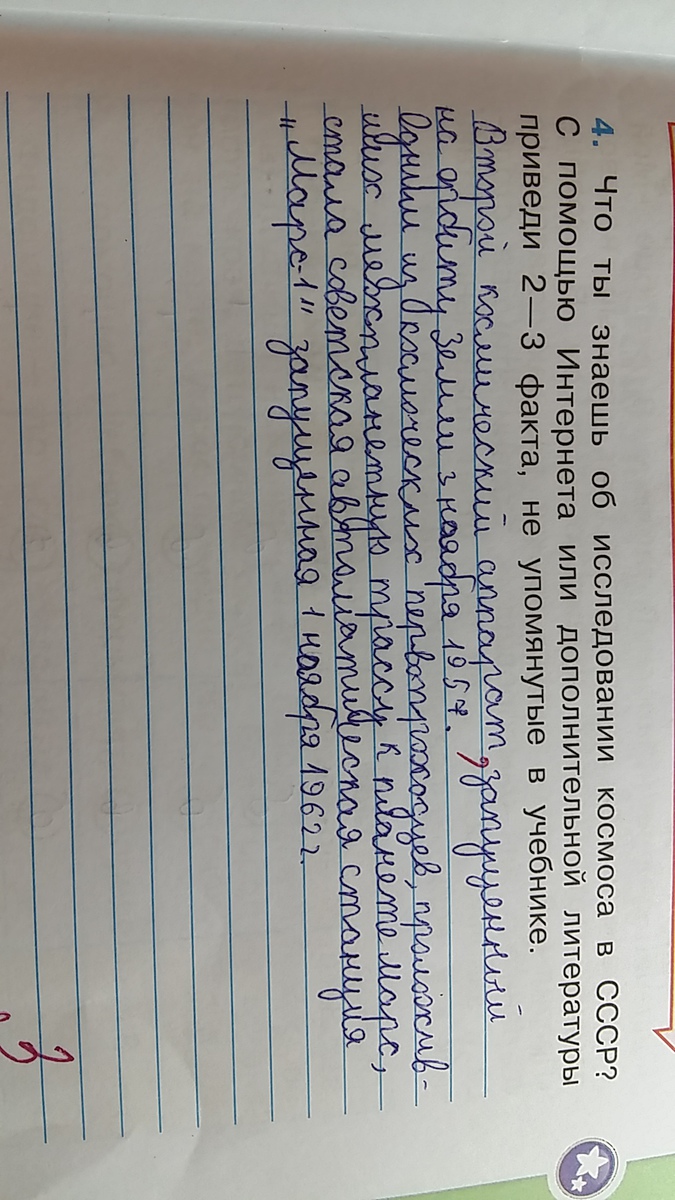 4. Что ты знаешь об исследовании космоса в СССР?
С помощью Интернета или дополнительной литературы
приведи 2—3 факта, не упомянутые в учебнике.
Второй космический аппарат, запущенный
на орбиту Земли 3 ноября 1957.
Одним из космических первопроходцев, проложив-
ших межпланетную трассу к планете марс,
стала советская автоматическая станция
"Марс-1" запущенная 1 ноября 1962 г.
3